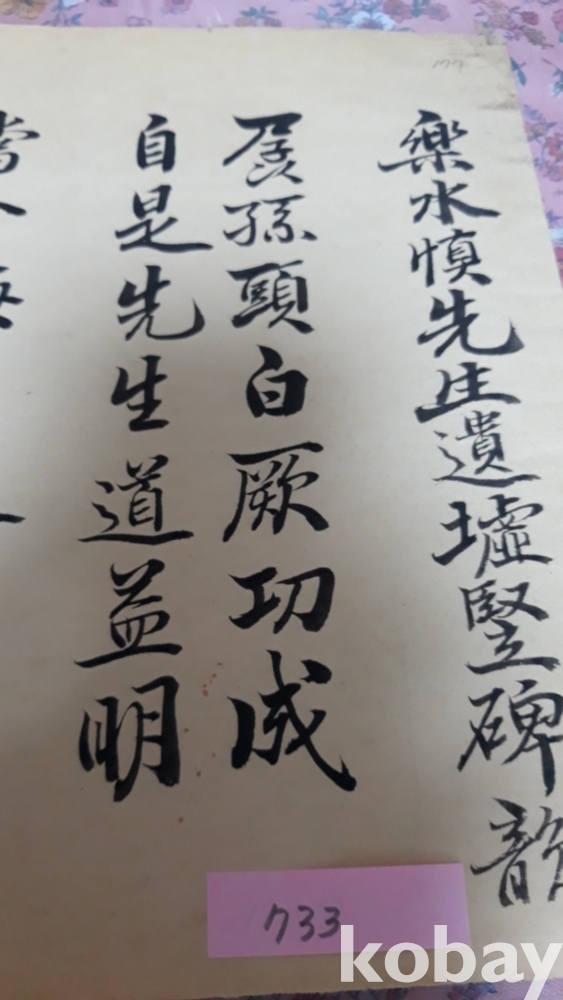 樂水慎先生遺墟竪碑韵
孱孫頭白厥功成
自是先生道益明
733
kobay